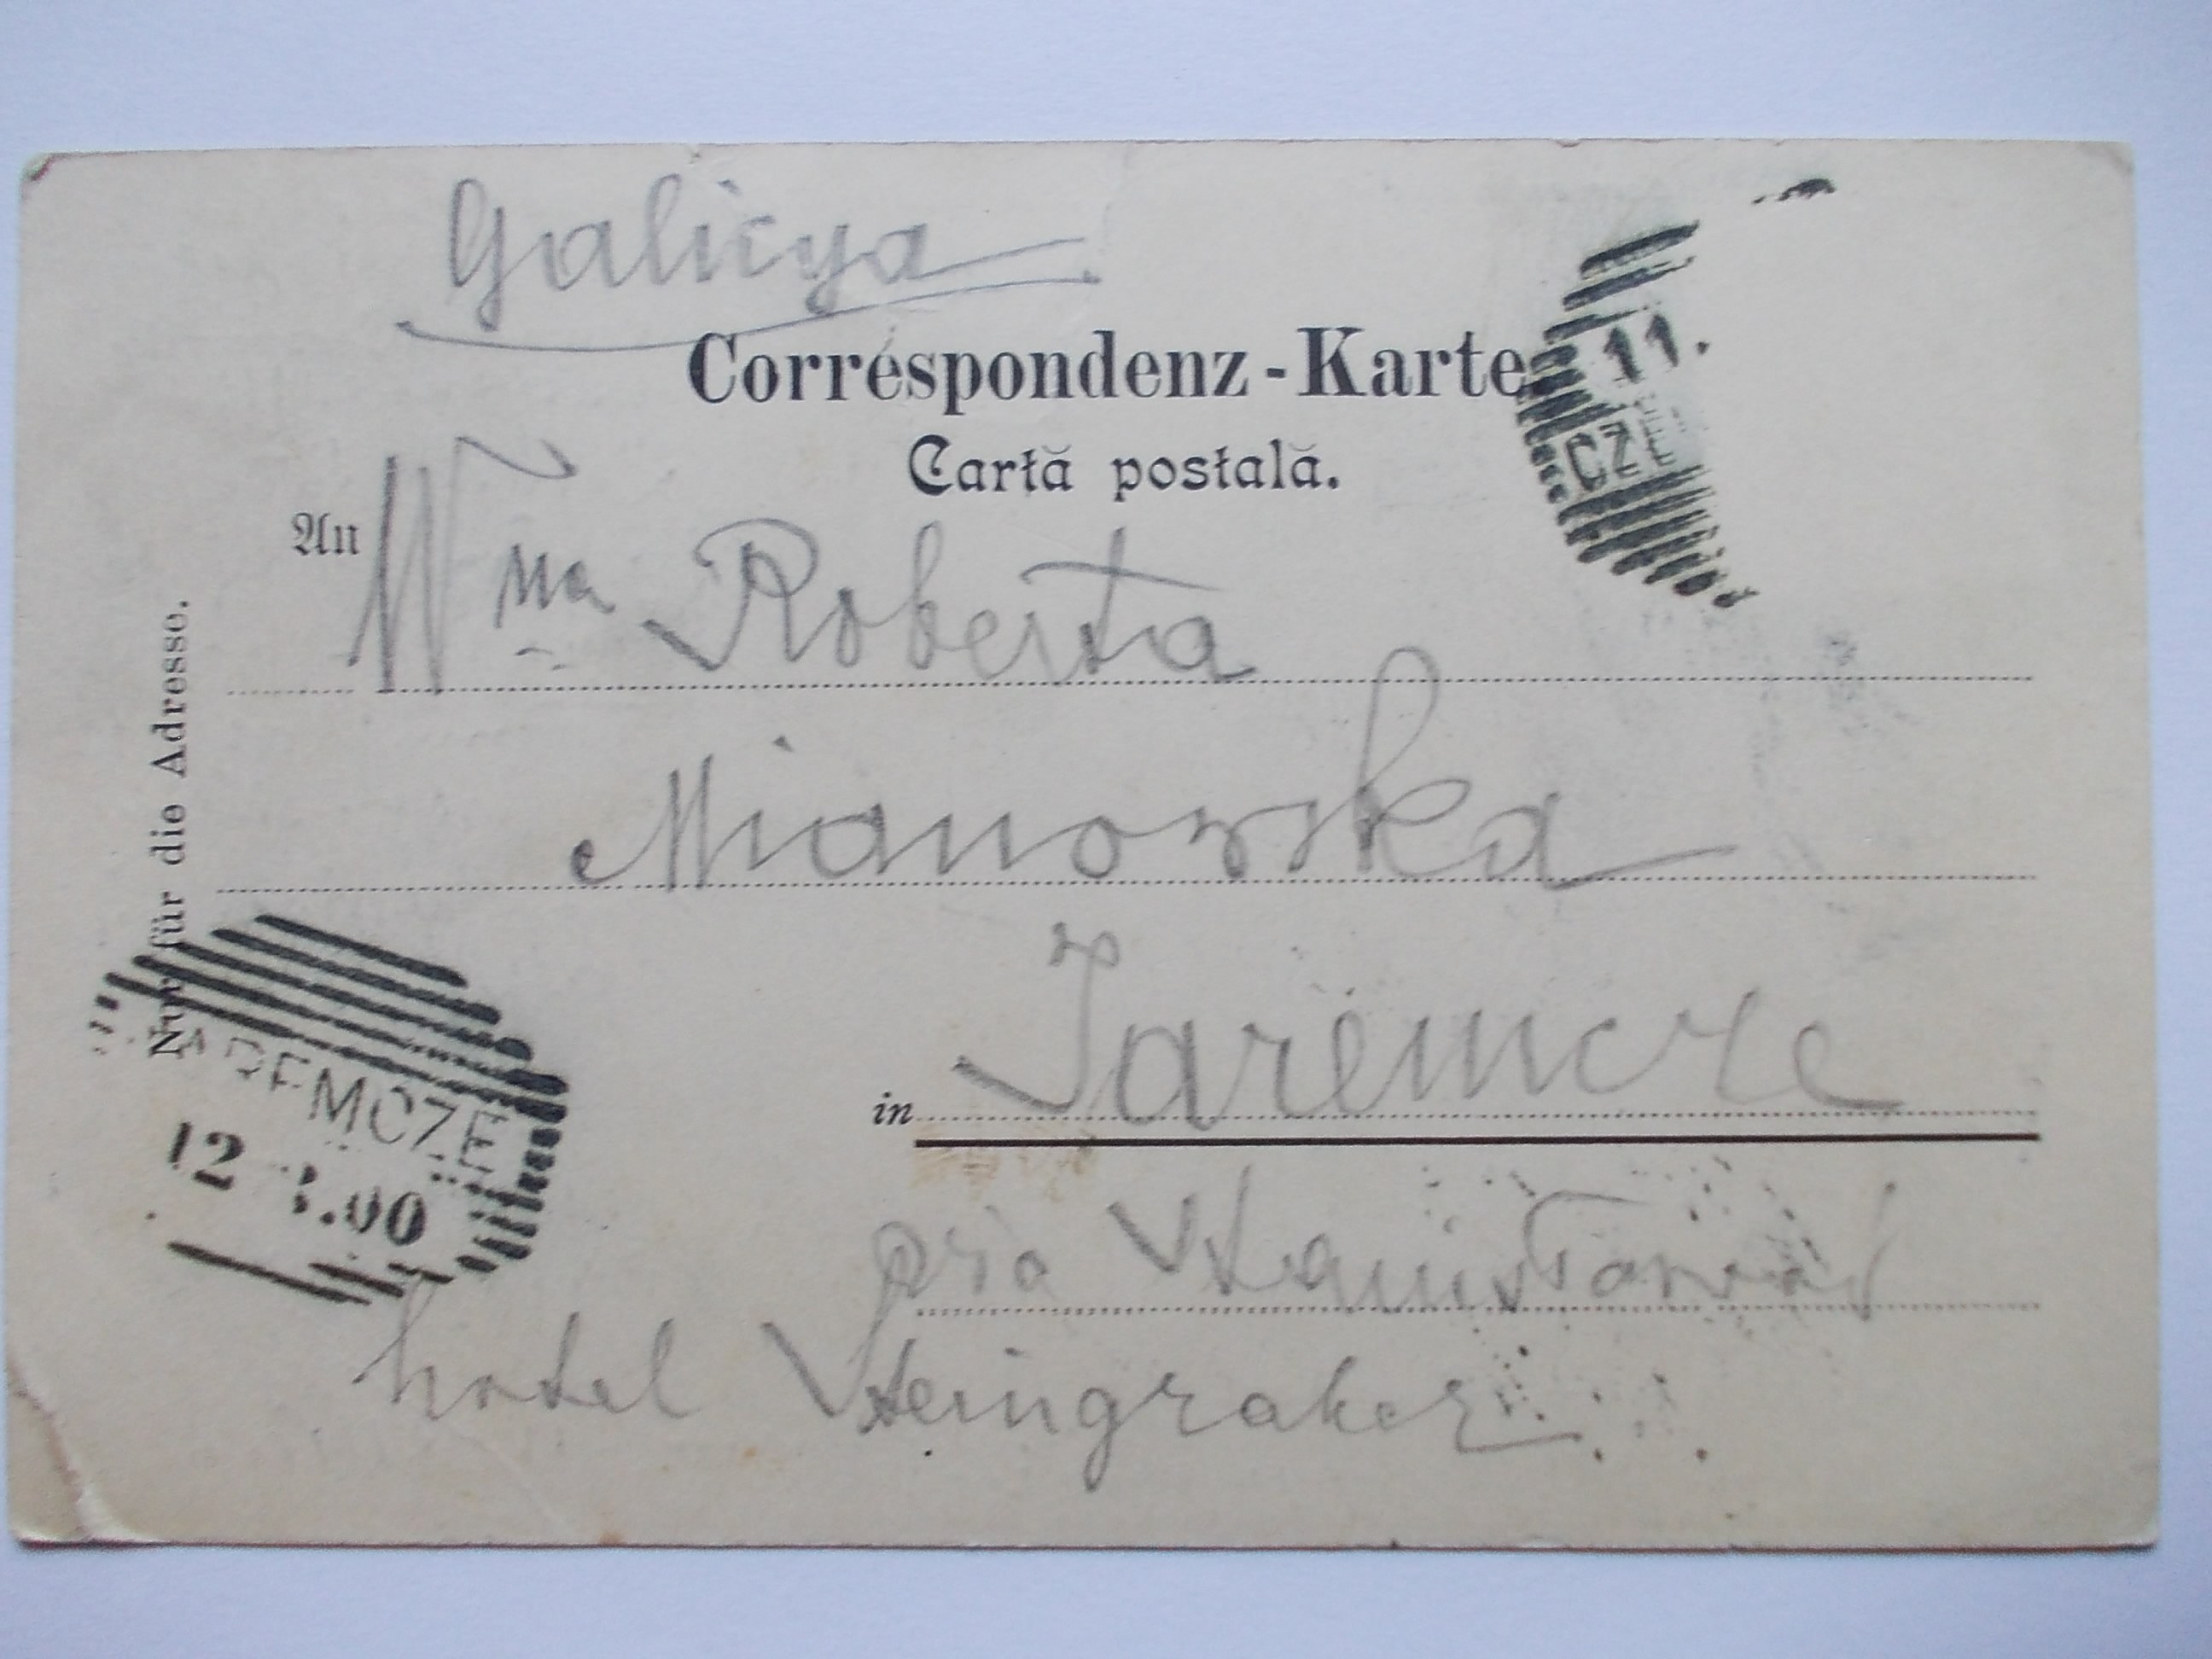 Galicya
Correspondenz-Karte
11.
Cartă postală.
CZE
An Wna Roberta
Mianowska
Nur für die Adresse.
in Jaremcze
REMCZE
12 .00
pia Stanisławów
hotel Steingraber